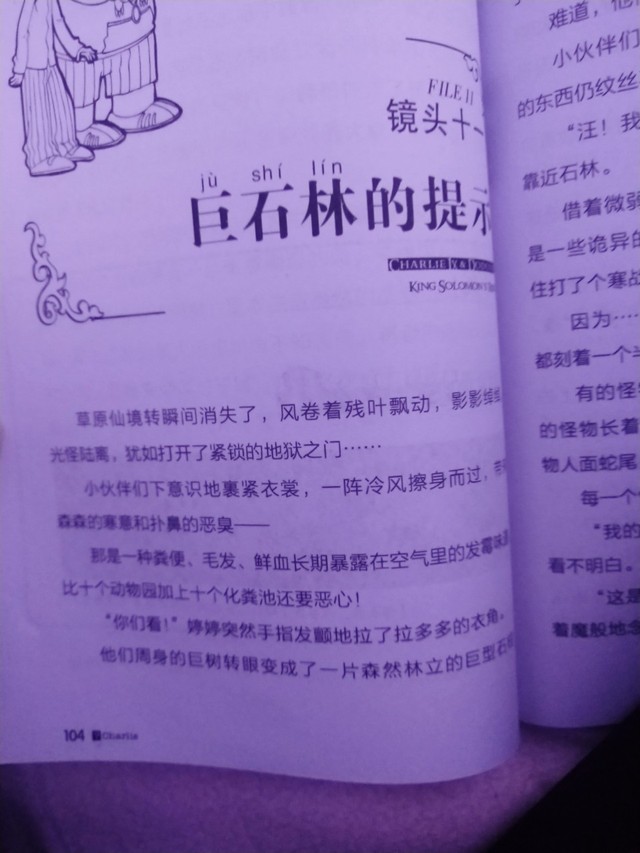 FILE 11
镜头十一
jù shí lín
巨石林的提示
CHARLIE IX &
KING SOLOMON'S
草原仙境转瞬间消失了，风卷着残叶飘动，影影绰绰
光怪陆离，犹如打开了紧锁的地狱之门……
小伙伴们下意识地裹紧衣裳，一阵冷风擦身而过，带
森森的寒意和扑鼻的恶臭——
那是一种粪便、毛发、鲜血长期暴露在空气里的发霉味道
比十个动物园加上十个化粪池还要恶心！
“你们看！”婷婷突然手指发颤地拉了拉多多的衣角。
他们周身的巨树转眼变成了一片森然林立的巨型石
104 Charlie
难道，他
小伙伴们
的东西仍纹丝
“汪！我
靠近石林。
借着微弱
是一些诡异的
住打了个寒战
因为……
都刻着一个半
有的怪
的怪物长着
物人面蛇尾
每一个
“我的
看不明白。
“这是
着魔般地念